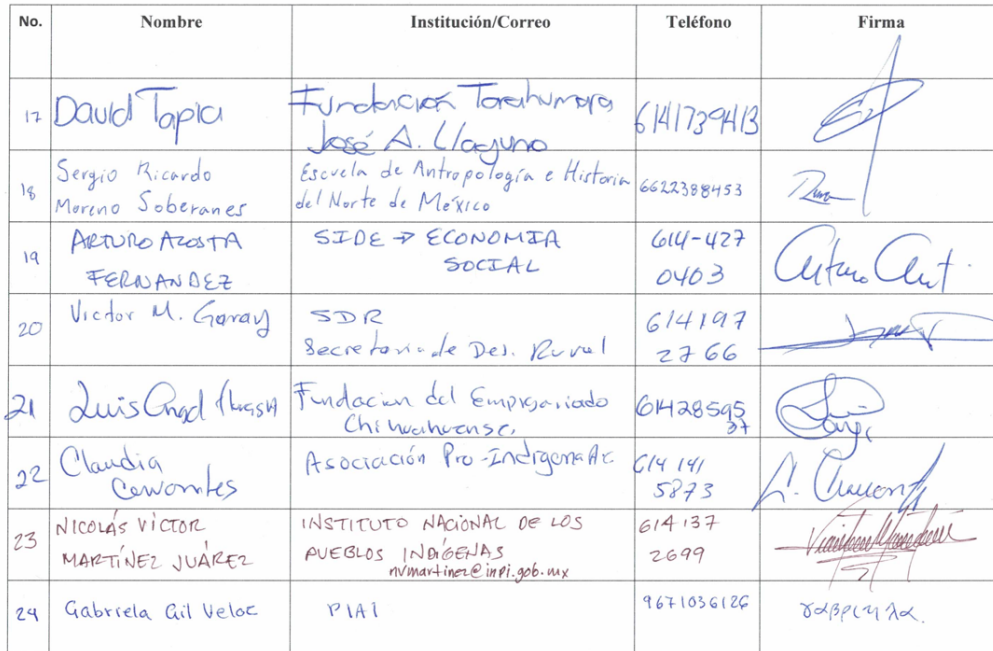 No. Nombre Institución/Correo Teléfono Firma
17 David Tapia Fundación Tarahumara José A. Llaguno 6141739413
18 Sergio Ricardo Moreno Soberanes Escuela de Antropología e Historia del Norte de México 6622388453
19 ARTURO ACOSTA FERNANDEZ SIDE → ECONOMIA SOCIAL 614-427 0403
20 Victor M. Garay SDR Secretaria de Des. Rural 614197 2766
21 Luis Fundacion del Empresariado Chihuahuense, 61428595 37
22 Claudia Cervantes Asociación Pro-Indígena Ac 614 141 5873
23 NICOLÁS VÍCTOR MARTÍNEZ JUÁREZ INSTITUTO NACIONAL DE LOS PUEBLOS INDÍGENAS nvmartinez@inpi.gob.mx 614 137 2699
24 Gabriela Gil Veloz PIAI 9671036126 γαβριηλα.